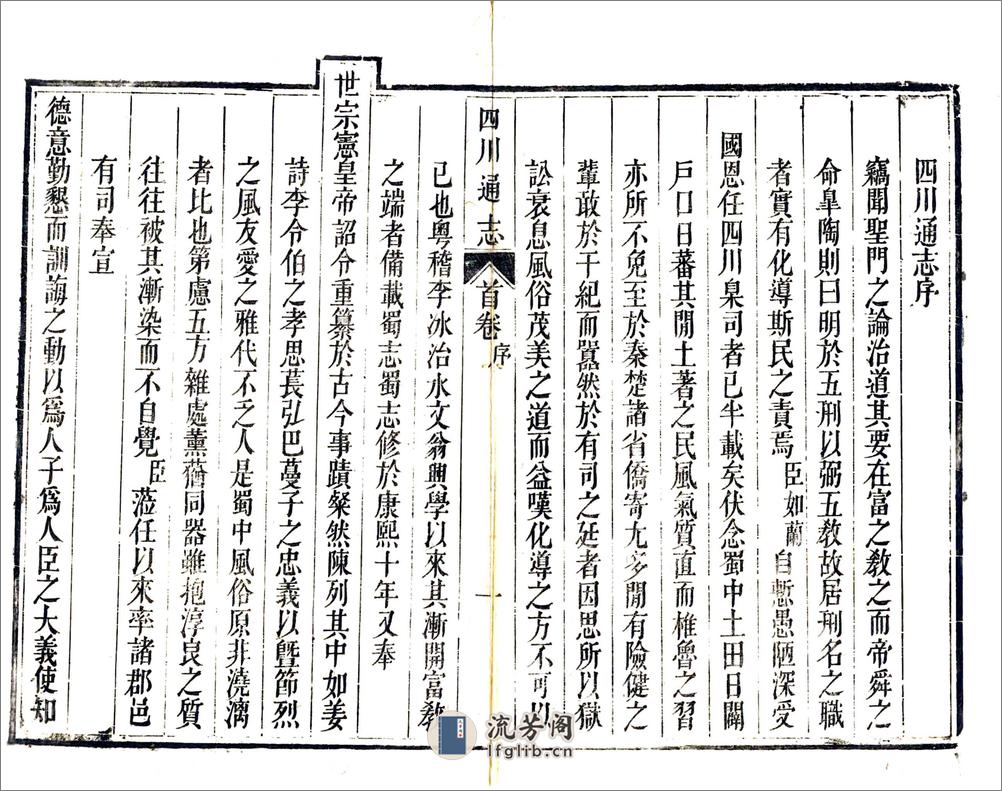 四川通志序
竊聞聖門之論治道其要在富之敎之而帝舜之
命臯陶則曰明於五刑以弼五敎故居刑名之職
者實有化導斯民之責焉臣如蘭自慙愚陋深受
國恩任四川臬司者已半載矣伏念蜀中土田日闢
戶口日蕃其閒土著之民風氣質直而椎魯之習
亦所不免至於秦楚諸省僑寄尤多閒有險健之
輩敢於干紀而囂然於有司之廷者因思所以獄
訟衰息風俗茂美之道而益嘆化導之方不可以
四川通志 首卷 序 一
已也粵稽李冰治水文翁興學以來其漸開富敎
之端者備載蜀志蜀志修於康熙十年又奉
世宗憲皇帝詔令重纂於古今事蹟粲然陳列其中如姜
詩李令伯之孝思萇弘巴蔓子之忠義以曁節烈
之風友愛之雅代不乏人是蜀中風俗原非澆漓
者比也第慮五方雜處薰蕕同器雖抱淳良之質
往往被其漸染而不自覺臣蒞任以來率諸郡邑
有司奉宣
德意勤懇而訓誨之動以爲人子爲人臣之大義使知
流芳阁
lfglib.cn